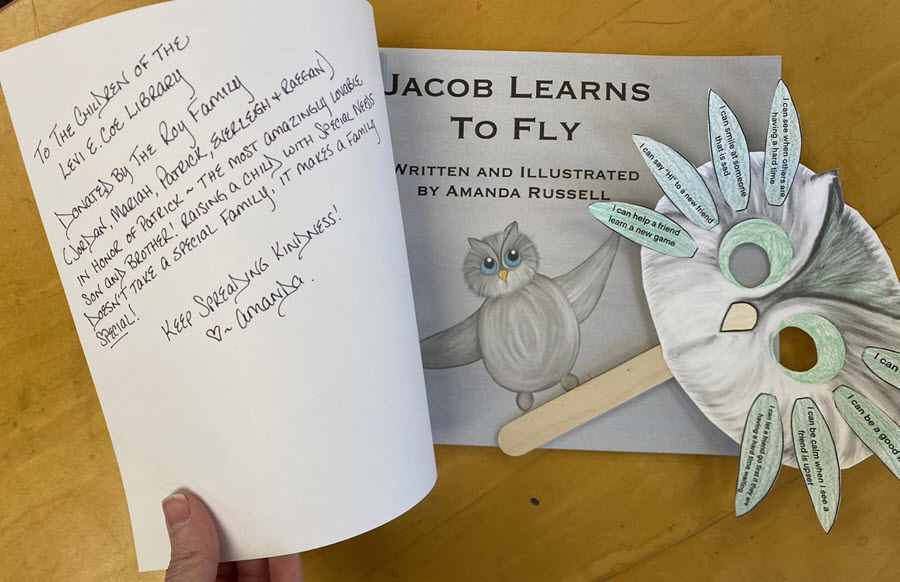 To The Children of the
Levi E. Coe Library
Donated By The Roy Family
(Jordan, Mariah, Patrick, Everleigh & Raegan)
in Honor of Patrick ~ the most amazingly lovable
son and brother! Raising a child with special needs
doesn't take a special family, it makes a family
special!
Keep Spreading Kindness!
♡~ Amanda.
Jacob Learns
To Fly
Written and Illustrated
by Amanda Russell
I can help a friend
learn a new game
I can say "Hi" to a new friend
I can smile at someone
that is sad
I can see when others are
having a hard time
I can let a friend go first if they are
having a hard time waiting
I can be calm when I see a
friend is upset
I can be a good
I can